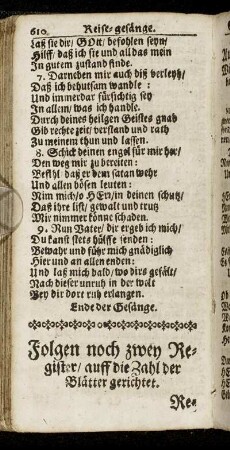 610. Reise-gesänge.
Laß sie dir/ GOtt/ befohlen seyn/
Hilff/ daß ich sie und all das mein
In gutem zustand finde.
7. Darneben mir auch diß verleyh/
Daß ich behutsam wandle:
Und immerdar fürsichtig sey
In allem/ was ich handle.
Durch deines heilgen Geistes gnad
Gib rechte zeit/ verstand und rath
Zu meinem thun und lassen.
8. Schick deinen engel für mir her/
Den weg mir zu bereiten:
Befihl daß er dem satan wehr
Und allen bösen leuten:
Nim mich/ o HErr/ in deinen schutz/
Daß ihre list/ gewalt und trutz
Mir nimmer könne schaden.
9. Nun Vater/ dir ergeb ich mich/
Du kanst stets hülffe senden:
Bewahr und führ mich gnädiglich
Hier und an allen enden:
Und laß mich bald/ wo dirs gefält/
Nach dieser unruh in der welt
Bey dir dort ruh erlangen.
Ende der Gesänge.
Folgen noch zwey Re-
gister/ auff die Zahl der
Blätter gerichtet.
Re-